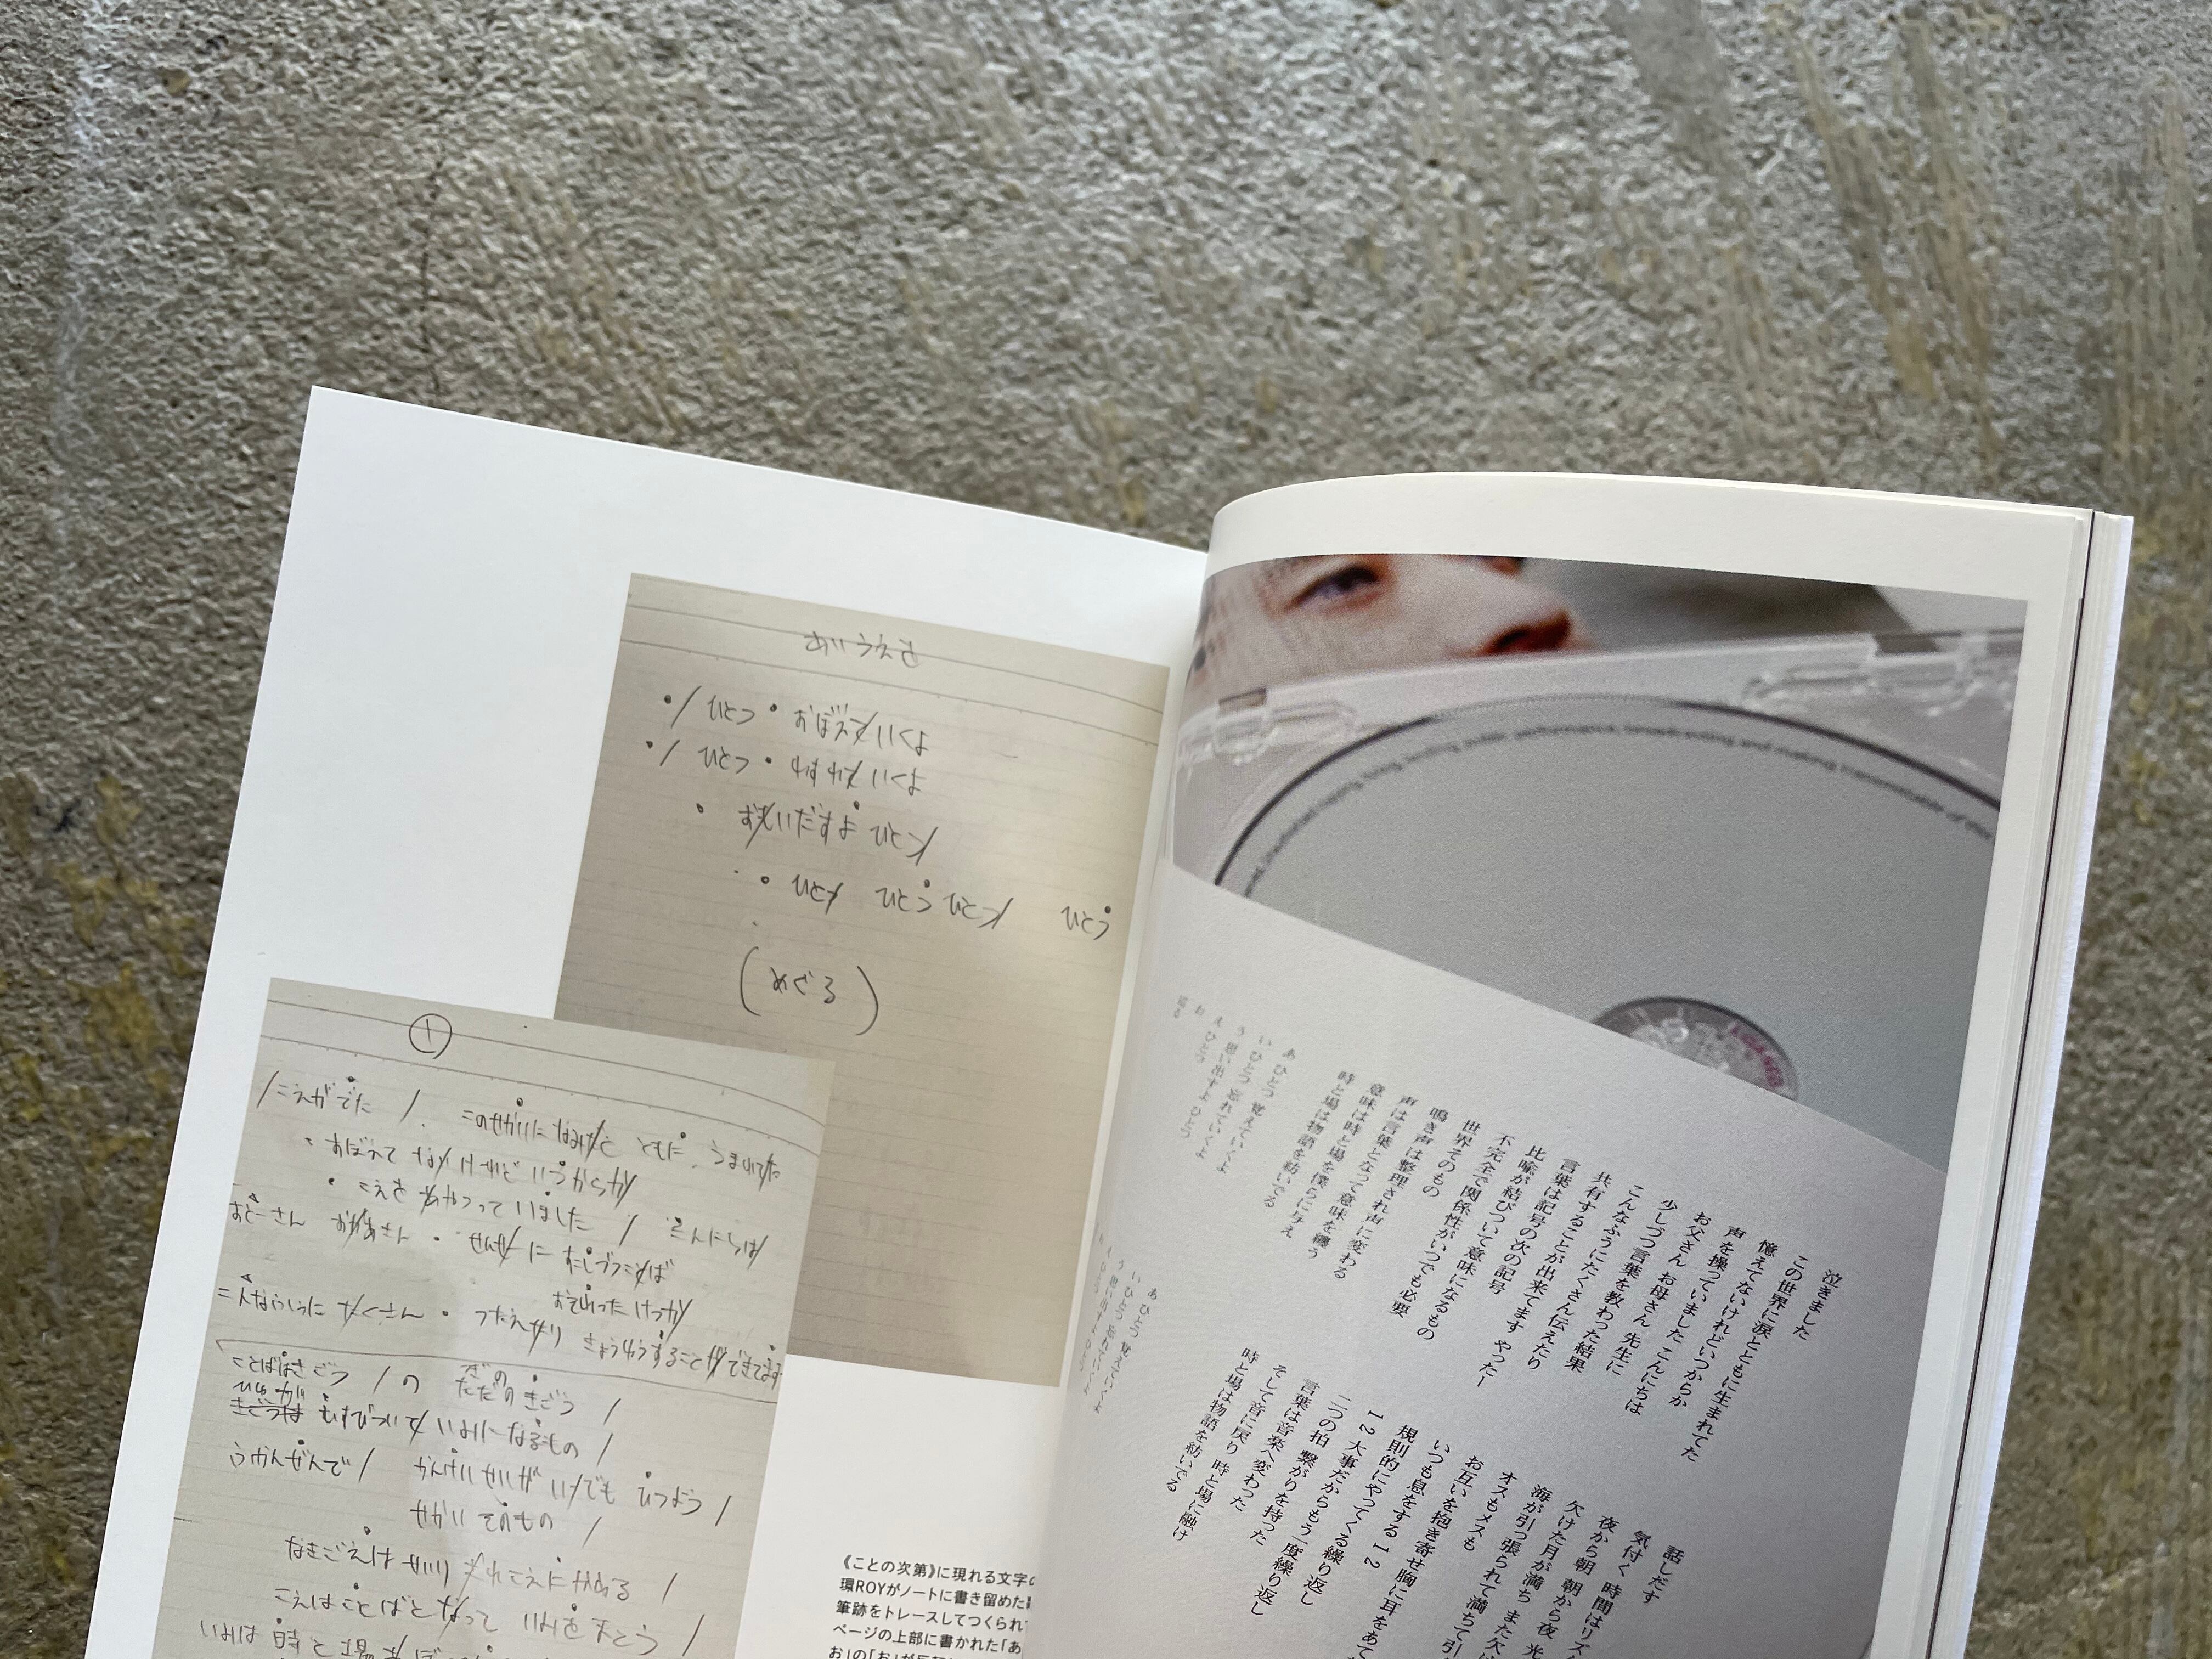 あいうえお
/ ひとつ・おぼえていくよ
/ ひとつ・わすれていくよ
・ おもいだすよ ひとつ
・ ひとつ ひとつ ひとつ ひとつ
(めぐる)
①
/こえがでた / このせかいに なみだと ともに うまれてた
・おぼえて ないけれど いつからか
・こえを あやつって いました / こんにちは
おとーさん おかあさん・せんせーに すこしづつことば
おそわった けっか
こんなふうに たくさん・つたえたり きょうゆうすることができてます
ことばはきごう /の つぎの
ただのきごう /
ひゆが
きごうは むすびついて いみになるもの /
ふかんぜんで / かんけいせいが いつでも ひつよう /
せかい そのもの /
なきごえは せいりされ こえに かわる /
こえは ことばと なって いみを まとう /
いみは 時と場
《ことの次第》に現れる文字の
環ROYがノートに書き留めた
筆跡をトレースしてつくられ
ページの上部に書かれた「あ
お」の「お」が
lending, public performance, broadcasting and making transmittable of
泣きました
この世界に涙とともに生まれてた
憶えてないけれどいつからか
声を操っていました こんにちは
お父さん お母さん 先生に
少しづつ言葉を教わった結果
こんなふうにたくさん伝えたり
共有することが出来てます やったー
言葉は記号の次の記号
比喩が結びついて意味になるもの
不完全で関係性がいつでも必要
世界そのもの
鳴き声は整理され声に変わる
声は言葉となって意味を纏う
意味は時と場を僕らに与え
時と場は物語を紡いでる
あ ひとつ 覚えていくよ
い ひとつ 忘れていくよ
う 思い出すよ ひとつ
え ひとつ
お
巡る
話しだす
気付く 時間はリズ
夜から朝 朝から夜 光
欠けた月が満ち また欠
海が引っ張られて満ちて引
オスもメスも
お互いを抱き寄せ胸に耳をあて
いつも息をする 1 2
規則的にやってくる繰り返し
1 2 大事だからもう一度繰り返し
二つの拍 繋がりを持った
言葉は音楽へ変わった
そして音に戻り 時と場に融け
時と場は物語を紡いでる
あ ひとつ 覚えていくよ
い ひとつ 忘れていくよ
う 思い出すよ ひとつ
え ひとつ
お